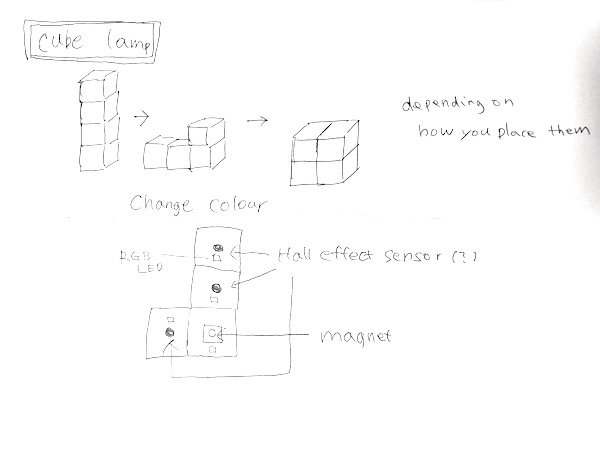 cube lamp
depending on
how you place them
Change colour
RGB
LED
Hall effect sensor (?)
magnet